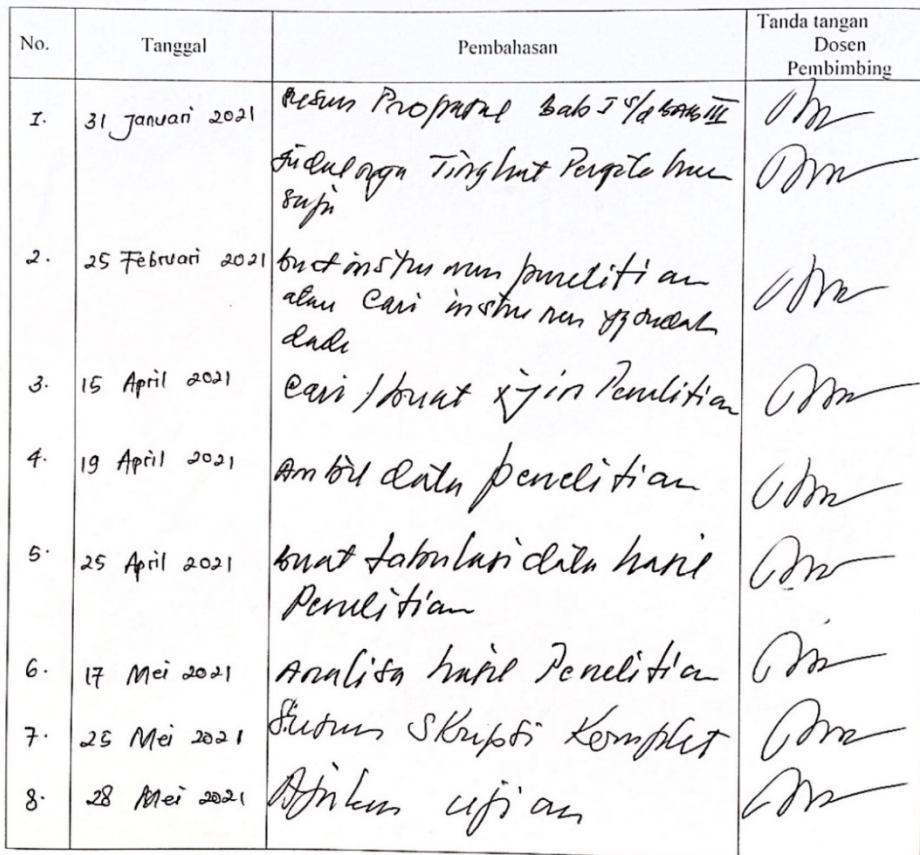 No. Tanggal Pembahasan Tanda tangan
Dosen
Pembimbing
1. 31 Januari 2021 susun Proposal bab I s/d BAB III
judulnya Tingkat Pengetahuan
saja
2. 25 Februari 2021 buat instrumen penelitian
atau Cari instrumen yg sudah
ada
3. 15 April 2021 Cari / buat ijin Penelitian
4. 19 April 2021 Ambil data penelitian
5. 25 April 2021 buat tabulasi data hasil
Penelitian
6. 17 Mei 2021 Analisa hasil Penelitian
7. 25 Mei 2021 Susun Skripsi Komplet
8. 28 Mei 2021 Ajukan ujian